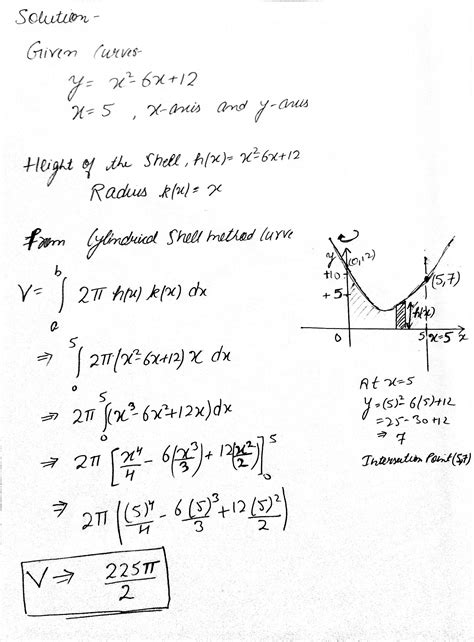 Solution -
Given Curves-
y = x²-6x+12
x=5 , x-axis and y-axis
Height of the Shell, h(x)= x²-6x+12
Radius k(x) = x
From Cylindrical Shell method Curve
V = ∫ₐᵇ 2π h(x) k(x) dx
⇒ ∫₀⁵ 2π(x²-6x+12) x dx
⇒ 2π ∫₀⁵ (x³-6x²+12x) dx
⇒ 2π [x⁴/4 - 6(x³/3) + 12(x²/2)]₀⁵
⇒ 2π ((5)⁴/4 - 6(5)³/3 + 12(5)²/2)
V ⇒ 225π/2
y
(0,12)
+10
+5
(5,7)
h(x)
0
5
x=5
x
At x=5
y=(5)²-6(5)+12
=25-30+12
⇒ 7
Intersection Point (5,7)